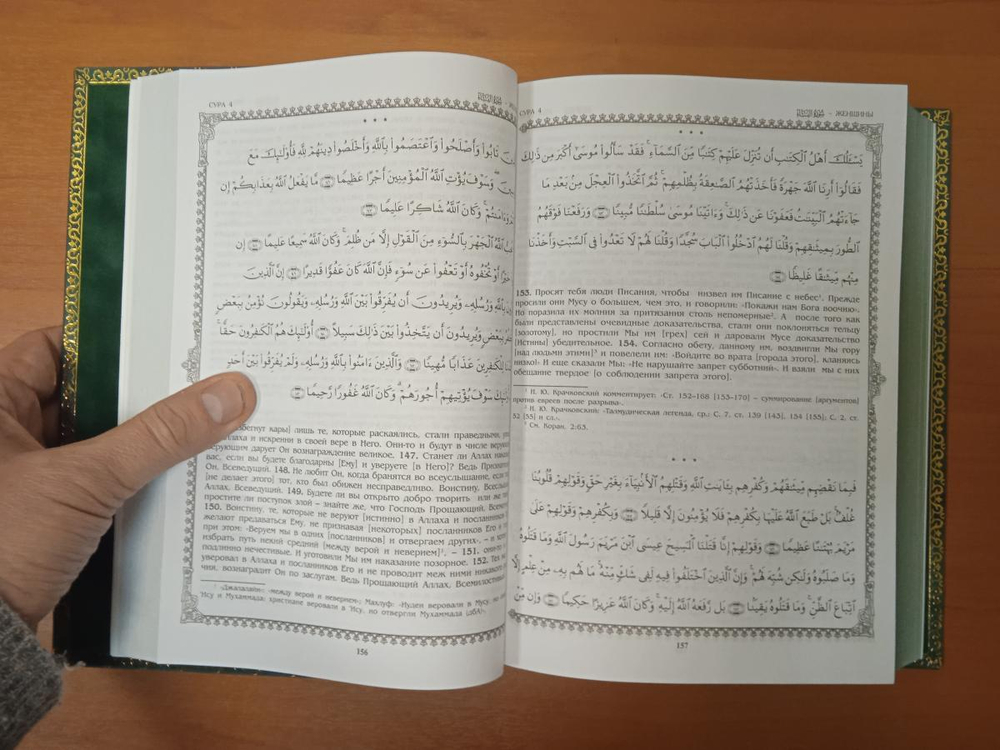 СУРА 4
* * *
تَابُوا۟ وَأَصْلَحُوا۟ وَٱعْتَصَمُوا۟ بِٱللَّهِ وَأَخْلَصُوا۟ دِينَهُمْ لِلَّهِ فَأُو۟لَـٰٓئِكَ مَعَ
وَسَوْفَ يُؤْتِ ٱللَّهُ ٱلْمُؤْمِنِينَ أَجْرًا عَظِيمًا مَّا يَفْعَلُ ٱللَّهُ بِعَذَابِكُمْ إِن
وَءَامَنتُمْ ۚ وَكَانَ ٱللَّهُ شَاكِرًا عَلِيمًا
ٱللَّهُ ٱلْجَهْرَ بِٱلسُّوٓءِ مِنَ ٱلْقَوْلِ إِلَّا مَن ظُلِمَ ۚ وَكَانَ ٱللَّهُ سَمِيعًا عَلِيمًا إِن
خَيْرًا أَوْ تُخْفُوهُ أَوْ تَعْفُوا۟ عَن سُوٓءٍ فَإِنَّ ٱللَّهَ كَانَ عَفُوًّا قَدِيرًا إِنَّ ٱلَّذِينَ
بِٱللَّهِ وَرُسُلِهِۦ وَيُرِيدُونَ أَن يُفَرِّقُوا۟ بَيْنَ ٱللَّهِ وَرُسُلِهِۦ وَيَقُولُونَ نُؤْمِنُ بِبَعْضٍ
بِبَعْضٍ وَيُرِيدُونَ أَن يَتَّخِذُوا۟ بَيْنَ ذَٰلِكَ سَبِيلًا أُو۟لَـٰٓئِكَ هُمُ ٱلْكَـٰفِرُونَ حَقًّا ۚ
لِلْكَـٰفِرِينَ عَذَابًا مُّهِينًا وَٱلَّذِينَ ءَامَنُوا۟ بِٱللَّهِ وَرُسُلِهِۦ وَلَمْ يُفَرِّقُوا۟ بَيْنَ أَحَدٍ
سَوْفَ يُؤْتِيهِمْ أُجُورَهُمْ ۗ وَكَانَ ٱللَّهُ غَفُورًا رَّحِيمًا
кары] лишь те, которые раскаялись, стали праведными,
и искренни в своей вере в Него. Они-то и будут в числе
дарует Он вознаграждение великое. 147. Станет ли Аллах
вас, если вы будете благодарны [Ему] и уверуете [в Него]? Ведь
Он, Всеведущий. 148. Не любит Он, когда бранятся во всеуслышание,
[не делает этого] тот, кто был обижен несправедливо. Воистину,
Аллах, Всеведущий. 149. Будете ли вы открыто добро творить или же
простите ли поступок злой – знайте же, что Господь Прощающий,
150. Воистину, те, которые не веруют [истинно] в Аллаха и
желают предаваться Ему, не признавая [некоторых] посланников Его и
при этом: «Веруем мы в одних [посланников] и отвергаем других», –
избрать путь некий средний [между верой и неверием]¹, – 151.
подлинно нечестивые. И уготовили Мы им наказание позорное. 152.
уверовал в Аллаха и посланников Его и не проводит меж ними
вознаградит Он по заслугам. Ведь Прощающий Аллах,
¹ «Джалалайн»: «между верой и неверием»; Махлуф: «Иудеи веровали в Мусу,
Ису и Мухаммада; христиане веровали в Ису, но отвергли Мухаммада
156
СУРА 4
– ЖЕНЩИНЫ
* * *
يَسْـَٔلُكَ أَهْلُ ٱلْكِتَـٰبِ أَن تُنَزِّلَ عَلَيْهِمْ كِتَـٰبًا مِّنَ ٱلسَّمَآءِ ۚ فَقَدْ سَأَلُوا۟ مُوسَىٰٓ أَكْبَرَ مِن ذَٰلِكَ
فَقَالُوٓا۟ أَرِنَا ٱللَّهَ جَهْرَةً فَأَخَذَتْهُمُ ٱلصَّـٰعِقَةُ بِظُلْمِهِمْ ۚ ثُمَّ ٱتَّخَذُوا۟ ٱلْعِجْلَ مِنۢ بَعْدِ مَا
جَآءَتْهُمُ ٱلْبَيِّنَـٰتُ فَعَفَوْنَا عَن ذَٰلِكَ ۚ وَءَاتَيْنَا مُوسَىٰ سُلْطَـٰنًا مُّبِينًا وَرَفَعْنَا فَوْقَهُمُ
ٱلطُّورَ بِمِيثَـٰقِهِمْ وَقُلْنَا لَهُمُ ٱدْخُلُوا۟ ٱلْبَابَ سُجَّدًا وَقُلْنَا لَهُمْ لَا تَعْدُوا۟ فِى ٱلسَّبْتِ وَأَخَذْنَا
مِنْهُم مِّيثَـٰقًا غَلِيظًا
153. Просят тебя люди Писания, чтобы низвел им Писание с небес¹. Прежде
просили они Мусу о большем, чем это, и говорили: «Покажи нам Бога воочию».
Но поразила их молния за притязания столь непомерные². А после того как
были представлены очевидные доказательства, стали они поклоняться тельцу
[золотому], но простили Мы им [грех] сей и даровали Мусе доказательство
[Истины] убедительное. 154. Согласно обету, данному им, воздвигли Мы гору
[над людьми этими]³ и повелели им: «Войдите во врата [города этого], кланяясь
низко!» И еще сказали Мы: «Не нарушайте запрет субботний». И взяли мы с них
обещание твердое [о соблюдении запрета этого].
¹ И. Ю. Крачковский комментирует: «Ст. 152–168 [153–170] – суммирование [аргументов]
против евреев после разрыва».
² И. Ю. Крачковский: «Талмудическая легенда, ср.: С. 7, ст. 139 [143], 154 [155]; С. 2, ст.
52 [55] и сл.».
³ См. Коран, 2:63.
* * *
فَبِمَا نَقْضِهِم مِّيثَـٰقَهُمْ وَكُفْرِهِم بِـَٔايَـٰتِ ٱللَّهِ وَقَتْلِهِمُ ٱلْأَنۢبِيَآءَ بِغَيْرِ حَقٍّ وَقَوْلِهِمْ قُلُوبُنَا
غُلْفٌۢ ۚ بَلْ طَبَعَ ٱللَّهُ عَلَيْهَا بِكُفْرِهِمْ فَلَا يُؤْمِنُونَ إِلَّا قَلِيلًا وَبِكُفْرِهِمْ وَقَوْلِهِمْ عَلَىٰ
مَرْيَمَ بُهْتَـٰنًا عَظِيمًا وَقَوْلِهِمْ إِنَّا قَتَلْنَا ٱلْمَسِيحَ عِيسَى ٱبْنَ مَرْيَمَ رَسُولَ ٱللَّهِ وَمَا قَتَلُوهُ
وَمَا صَلَبُوهُ وَلَـٰكِن شُبِّهَ لَهُمْ ۚ وَإِنَّ ٱلَّذِينَ ٱخْتَلَفُوا۟ فِيهِ لَفِى شَكٍّ مِّنْهُ ۚ مَا لَهُم بِهِۦ مِنْ عِلْمٍ إِلَّا
ٱتِّبَاعَ ٱلظَّنِّ ۚ وَمَا قَتَلُوهُ يَقِينًۢا بَل رَّفَعَهُ ٱللَّهُ إِلَيْهِ ۚ وَكَانَ ٱللَّهُ عَزِيزًا حَكِيمًا وَإِن مِّنْ
157